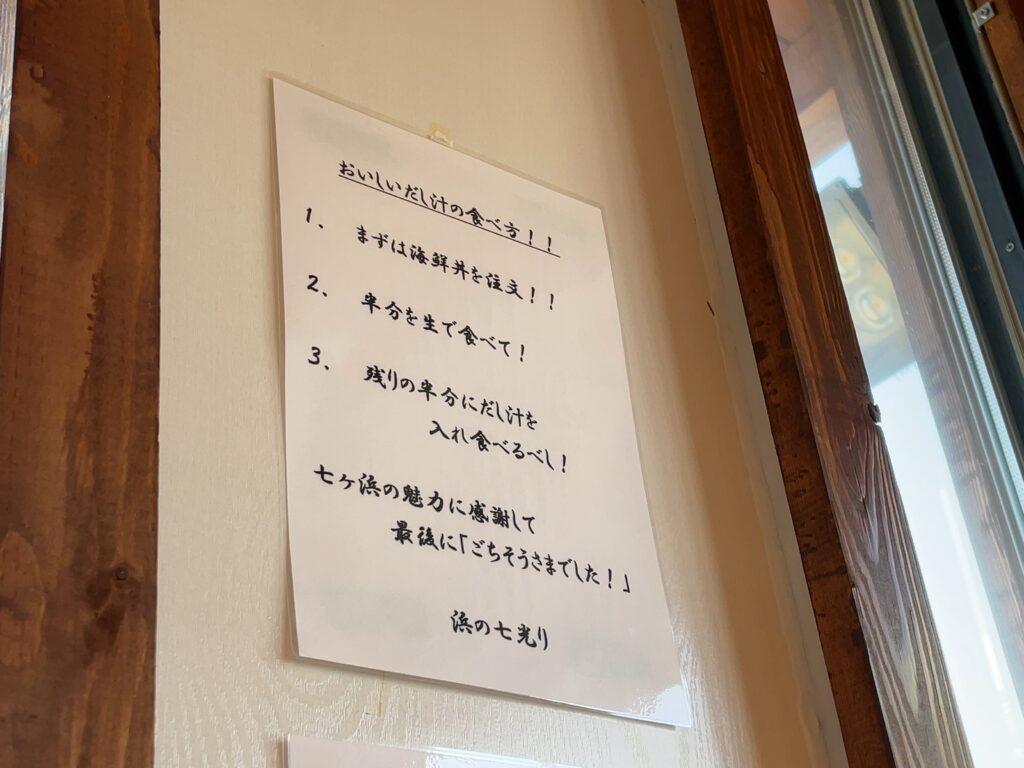 おいしいだし汁の食べ方！！
1． まずは海鮮丼を注文！！
2． 半分を生で食べて！
3． 残りの半分にだし汁を
入れ食べるべし！
七ヶ浜の魅力に感謝して
最後に「ごちそうさまでした！」
浜の七光り